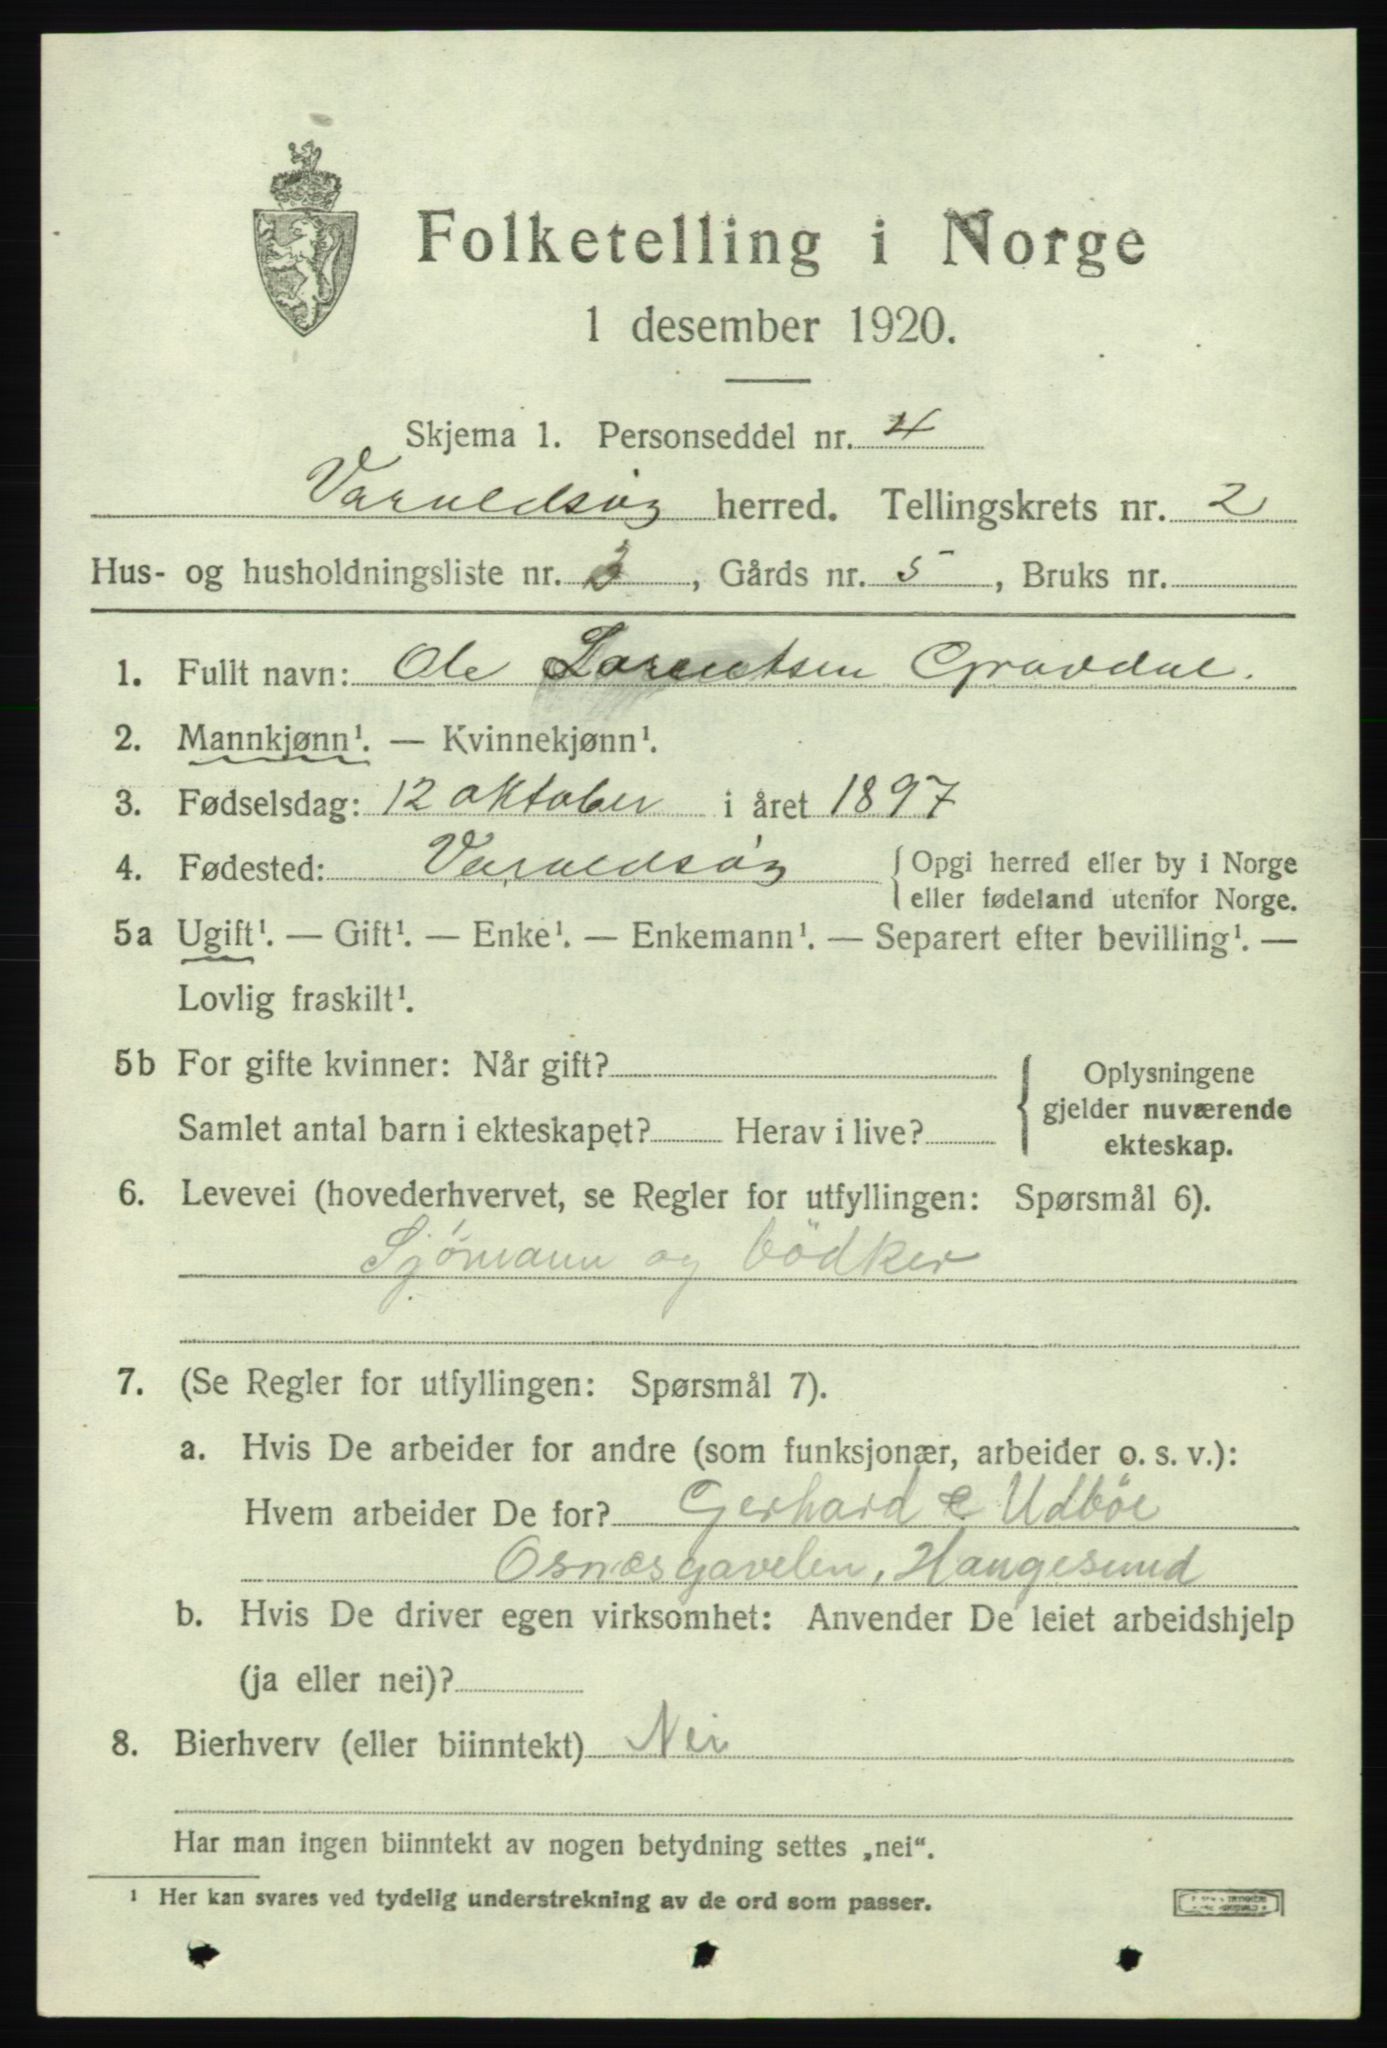 Folketelling i Norge
1 desember 1920.
Skjema 1. Personseddel nr. 4
Varaldsøy herred. Tellingskrets nr. 2
Hus- og husholdningsliste nr. 3, Gårds nr. 5, Bruks nr.
1. Fullt navn: Ole Larentsen Gravdal.
2. Mannkjønn¹. — Kvinnekjønn¹.
3. Fødselsdag: 12 oktober i året 1897
4. Fødested: Varaldsøy { Opgi herred eller by i Norge
eller fødeland utenfor Norge.
5a Ugift¹. — Gift¹. — Enke¹. — Enkemann¹. — Separert efter bevilling¹. —
Lovlig fraskilt¹.
5b For gifte kvinner: Når gift? { Oplysningene
gjelder nuværende
Samlet antal barn i ekteskapet? Herav i live?
ekteskap.
6. Levevei (hovederhvervet, se Regler for utfyllingen: Spørsmål 6).
Sjømann og bödker
7. (Se Regler for utfyllingen: Spørsmål 7).
a. Hvis De arbeider for andre (som funksjonær, arbeider o. s. v.):
Hvem arbeider De for? Gerhard e Udböe
Osnæsgavelen, Haugesund
b. Hvis De driver egen virksomhet: Anvender De leiet arbeidshjelp
(ja eller nei)?
8. Bierhverv (eller biinntekt) Nei
Har man ingen biinntekt av nogen betydning settes „nei“.
¹ Her kan svares ved tydelig understrekning av de ord som passer.